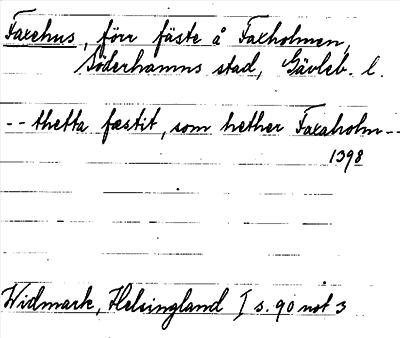 Faxehus, förr fäste å Faxholmen,
Söderhamns stad, Gävleb. l.
-- thetta fæstit, som hether Faxaholm --
1398
Widmark, Helsingland I s. 90 not 3